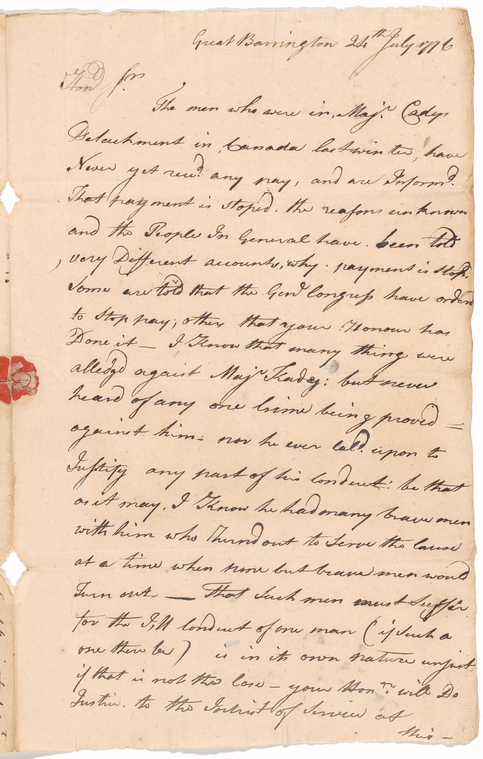 Great Barrington 24th July 1776
Hond Sr
The men who were in Majr Cadys
Detachment in Canada last winter, have
Never yet recd any pay, and are Informd
That payment is stoped. the reason unknown
and the People In General have been told
very Different accounts, why payment is stopd
Some are told that the Genl Congress have orderd
to stop pay, other that your Honour has
Done it — I Know that many thing were
alledgd against Majr Kadey: but never
heard of any one Crime being proved =
against him - nor he ever Cald upon to
Justify any part of his Conduct: be that
as it may. I Know he had many brave men
with him who Turnd out to Serve the Cause
at a time when none but brave men would
Turn out — That Such men must Suffer
for the Ill Conduct of one man (if Such a
one there be) is in its own nature unjust
if that is not the Case - your Honr will Do
Justice to the of Service at
this -